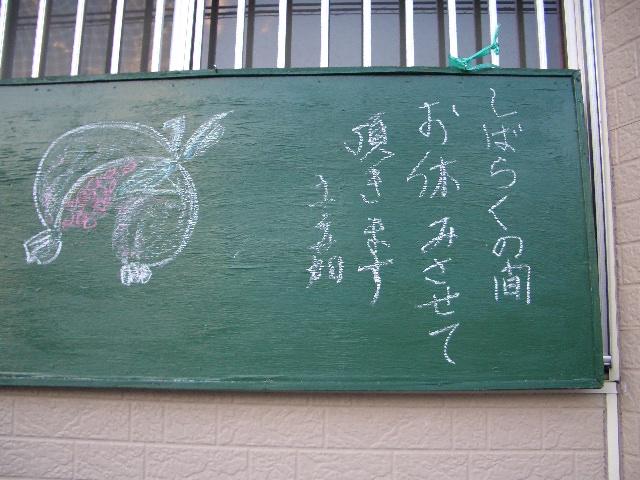 しばらくの間
お休みさせて
頂きます